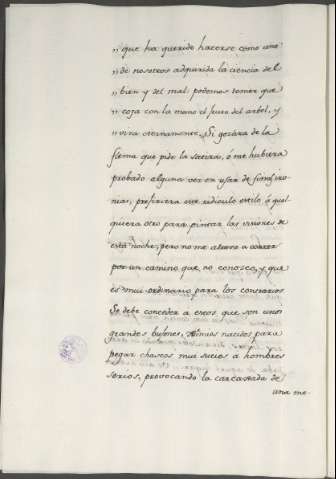 ,, que ha querido hacerse como uno
,, de nosotros adquirida la ciencia del
,, bien y del mal podemos temer que
,, coja con la mano el fruto del arbol, y
,, viva eternamente. Si gozára de la
flema que pide la satira, ó me hubiera
probado alguna vez en usar de finas iro
nias, prefiriera este ridiculo estilo, ó qual
quiera otro para pintar los errores de
esta noche; pero no me atrevo a correr
por un camino que no conosco, y que
es mui ordinario para los contrarios.
Se debe conceder a estos que son unos
grandes bufones, Mimos nacidos para
pegar chascos mui sucios a hombres
serios, provocando la carcaxada de
una me-